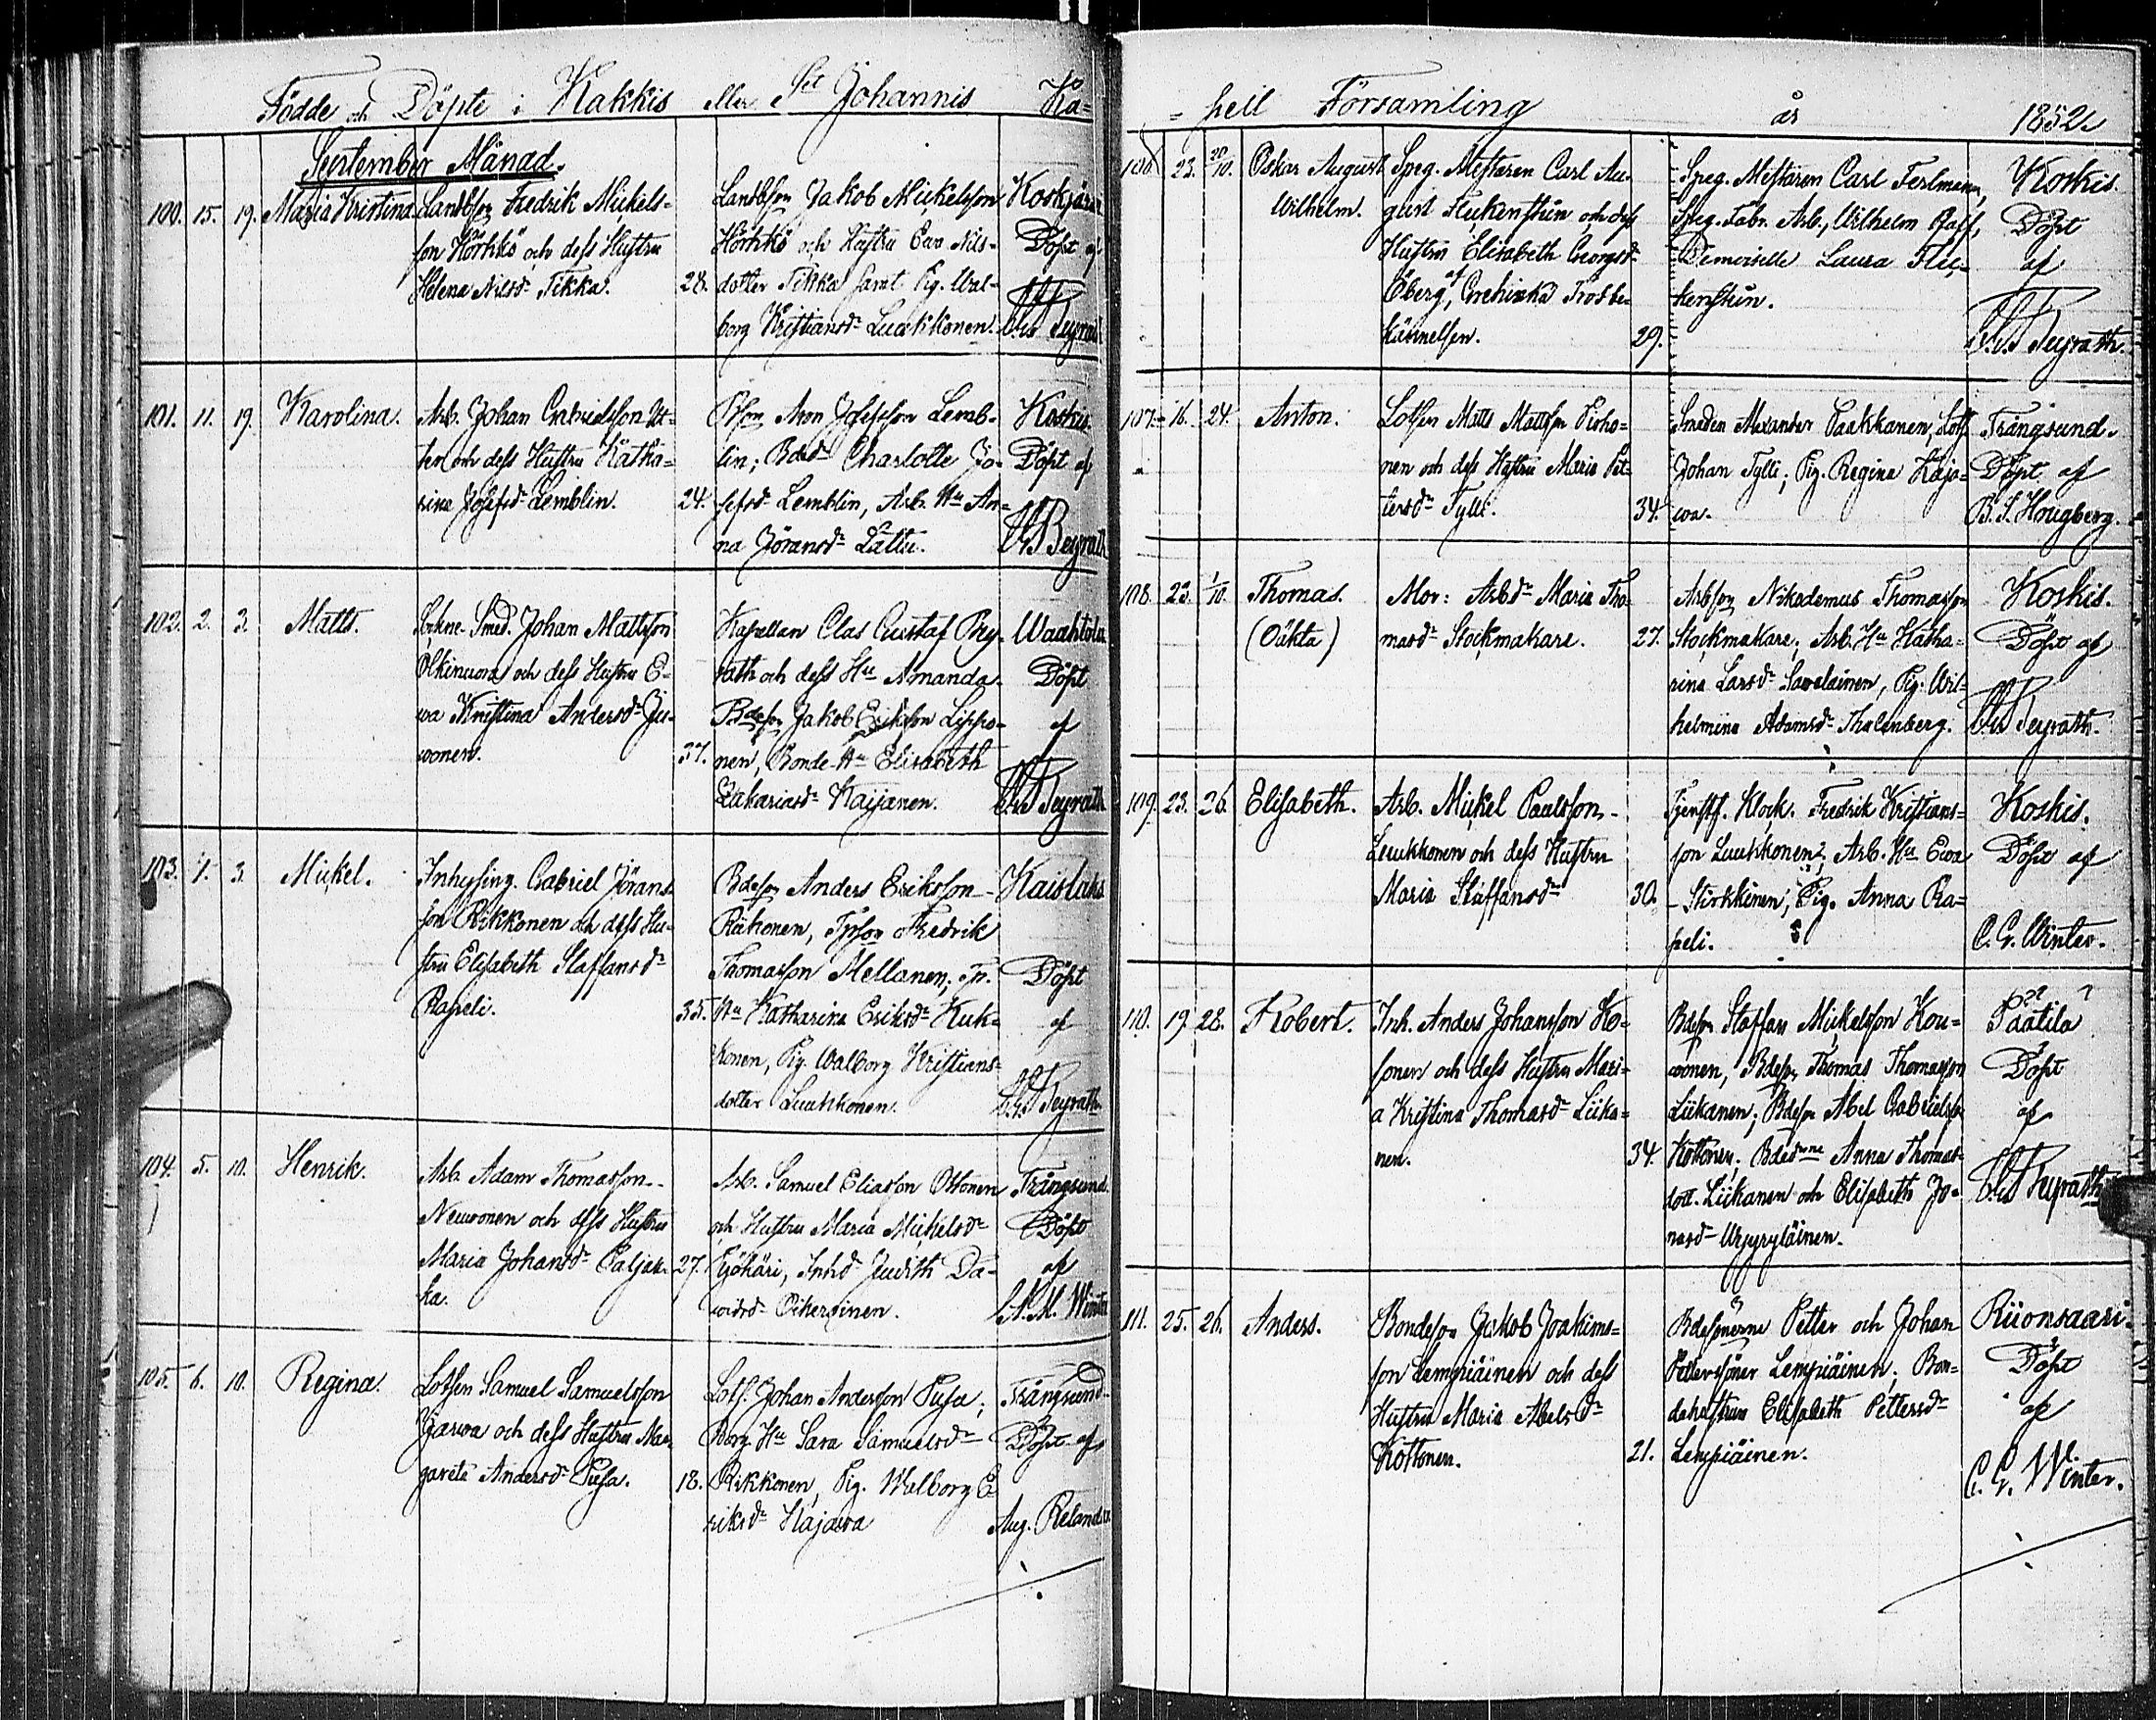 Födde och Döpte i Kakkis eller Sct Johannis Ka=
September Månad.
100. 15. 19. Maria Kristina. Landbson Fredrik Mickels=
son Hörhkö och dess Hustru
Helena Nilsdr Tikka. 28.
Landbson Jakob Mickelsson
Hörhkö och Hustru Eva Nils=
dotter Tikka samt Pig. Wal=
borg Kristiansdr Luukkonen.
Koskijärvi
Döpt af
101. 11. 19. Karolina. Arb. Johan Gabrielsson
och dess Hustru Katha=
rina Josefsdr Lemblin. 24.
Aron Josefsson Lemb=
lin; Charlotte Jo=
sefsdr Lemblin, Arb. Hu An=
na Göransdr Lättu.
Koskis.
Döpt af
102. 2. 3. Matts. Sockne-Smed. Johan Mattsson
Olkinuora och dess Hustru E=
va Kristina Andersdr Ju=
vonen. 37.
Kapellan Clas Gustaf
och dess Hu Amanda.
Bdeson Jakob Eriksson Lippo=
nen, Bonde-Hu Elisabeth
Zakariasdr Kaijanen.
Waahtola
Döpt
af
103. 1. 3. Mickel. Inhysing. Gabriel Görans=
son Rikkonen och dess Hu=
stru Elisabeth Staffansdr
Rapeli. 35.
Bdeson Anders Eriksson
Räikonen, Fredrik
Thomasson Mellanen; Tp.
Hu Katharina Eriksdr Kuk=
konen, Pig. Walborg Kristians=
dotter Luukkonen.
Kaislaks
Döpt
af
104. 5. 10. Henrik. Arb. Adam Thomasson
Neuvonen och dess Hustru
Maria Johansdr Paljak=
ka. 27.
Arb. Samuel Eliasson Ottonen
och Hustru Maria Mickelsdr
Judith Da=
vidsdr
Trångsund.
Döpt
af
Winter
105. 6. 10. Regina. Lotsen Samuel Samuelsson
och dess Hustru Mar=
gareta Andersdr Pusa. 18.
Lots. Johan Andersson Pusa;
Borg. Hu Sara Samuelsdr
Rikkonen, Pig. Walborg E=
riksdr Hajawa
Trångsund.
Döpt af
Aug. Relander
= pell Församling år 1852.
106. 23. 20/10. Oskar August
Wilhelm.
Speg. Mestaren Carl Au=
gust och dess
Hustru Elisabeth Georgsdr
Öberg, af Grekiska Trosbe=
kännelsen. 29.
Speg. Mestaren Carl Ferlmann,
Speg. Fabr. Arb., Wilhelm
Demoiselle Laura
Koskis.
Döpt
af
107. 16. 24. Anton. Lotsen Matts Mattsson Pirho=
nen och dess Hustru Maria Pet=
tersdr Tylli. 34.
Smeden Alexander Paakkanen, Lots.
Johan Tylli; Pig. Regina Haja=
wa.
Trångsund.
Döpt af
B. S. Hougberg.
108. 23. 1/10. Thomas.
(Oäkta)
Mor: Arbdr Maria Tho=
masdr Stockmakare. 27.
Arbson Nikodemus Thomasson
Stockmakare; Arb. Hu Katha=
rina Larsdr Savolainen, Pig. Wil=
helmina Adamsdr Thalenberg.
Koskis.
Döpt af
109. 23. 26. Elisabeth. Arb. Mickel Paulsson
Leukkonen och dess Hustru
Maria Staffansdr 30.
Tjenstf. Klock. Fredrik Kristians=
son Luukkonen; Arb. Hu Ewa
Stirkkinen; Pig. Anna Ra=
peli.
Koskis.
Döpt af
C. G. Winter.
110. 19. 28. Robert. Inh. Anders Johansson Ko=
sonen och dess Hustru Mari=
a Kristina Thomasdr Liika=
nen. 34.
Bdeson Staffan Mickelsson Kou=
vonen, Bdeson Thomas Thomasson
Liikanen; Bdeson Abel Gabrielsson
Kottonen; Anna Thomas
dott. Liikanen och Elisabeth Jo=
nasdr
Päätilä
Döpt
af
111. 25. 26. Anders. Bondeson Jakob Joakims=
son Lempiäinen och dess
Hustru Maria Abelsdr
Kottonen. 21.
Bdesönerne Petter och Johan
Petterssöner Lempiäinen; Bon=
dehustrun Elisabeth Pettersdr
Lempiäinen.
Riionsaari.
Döpt
af
C. G. Winter.